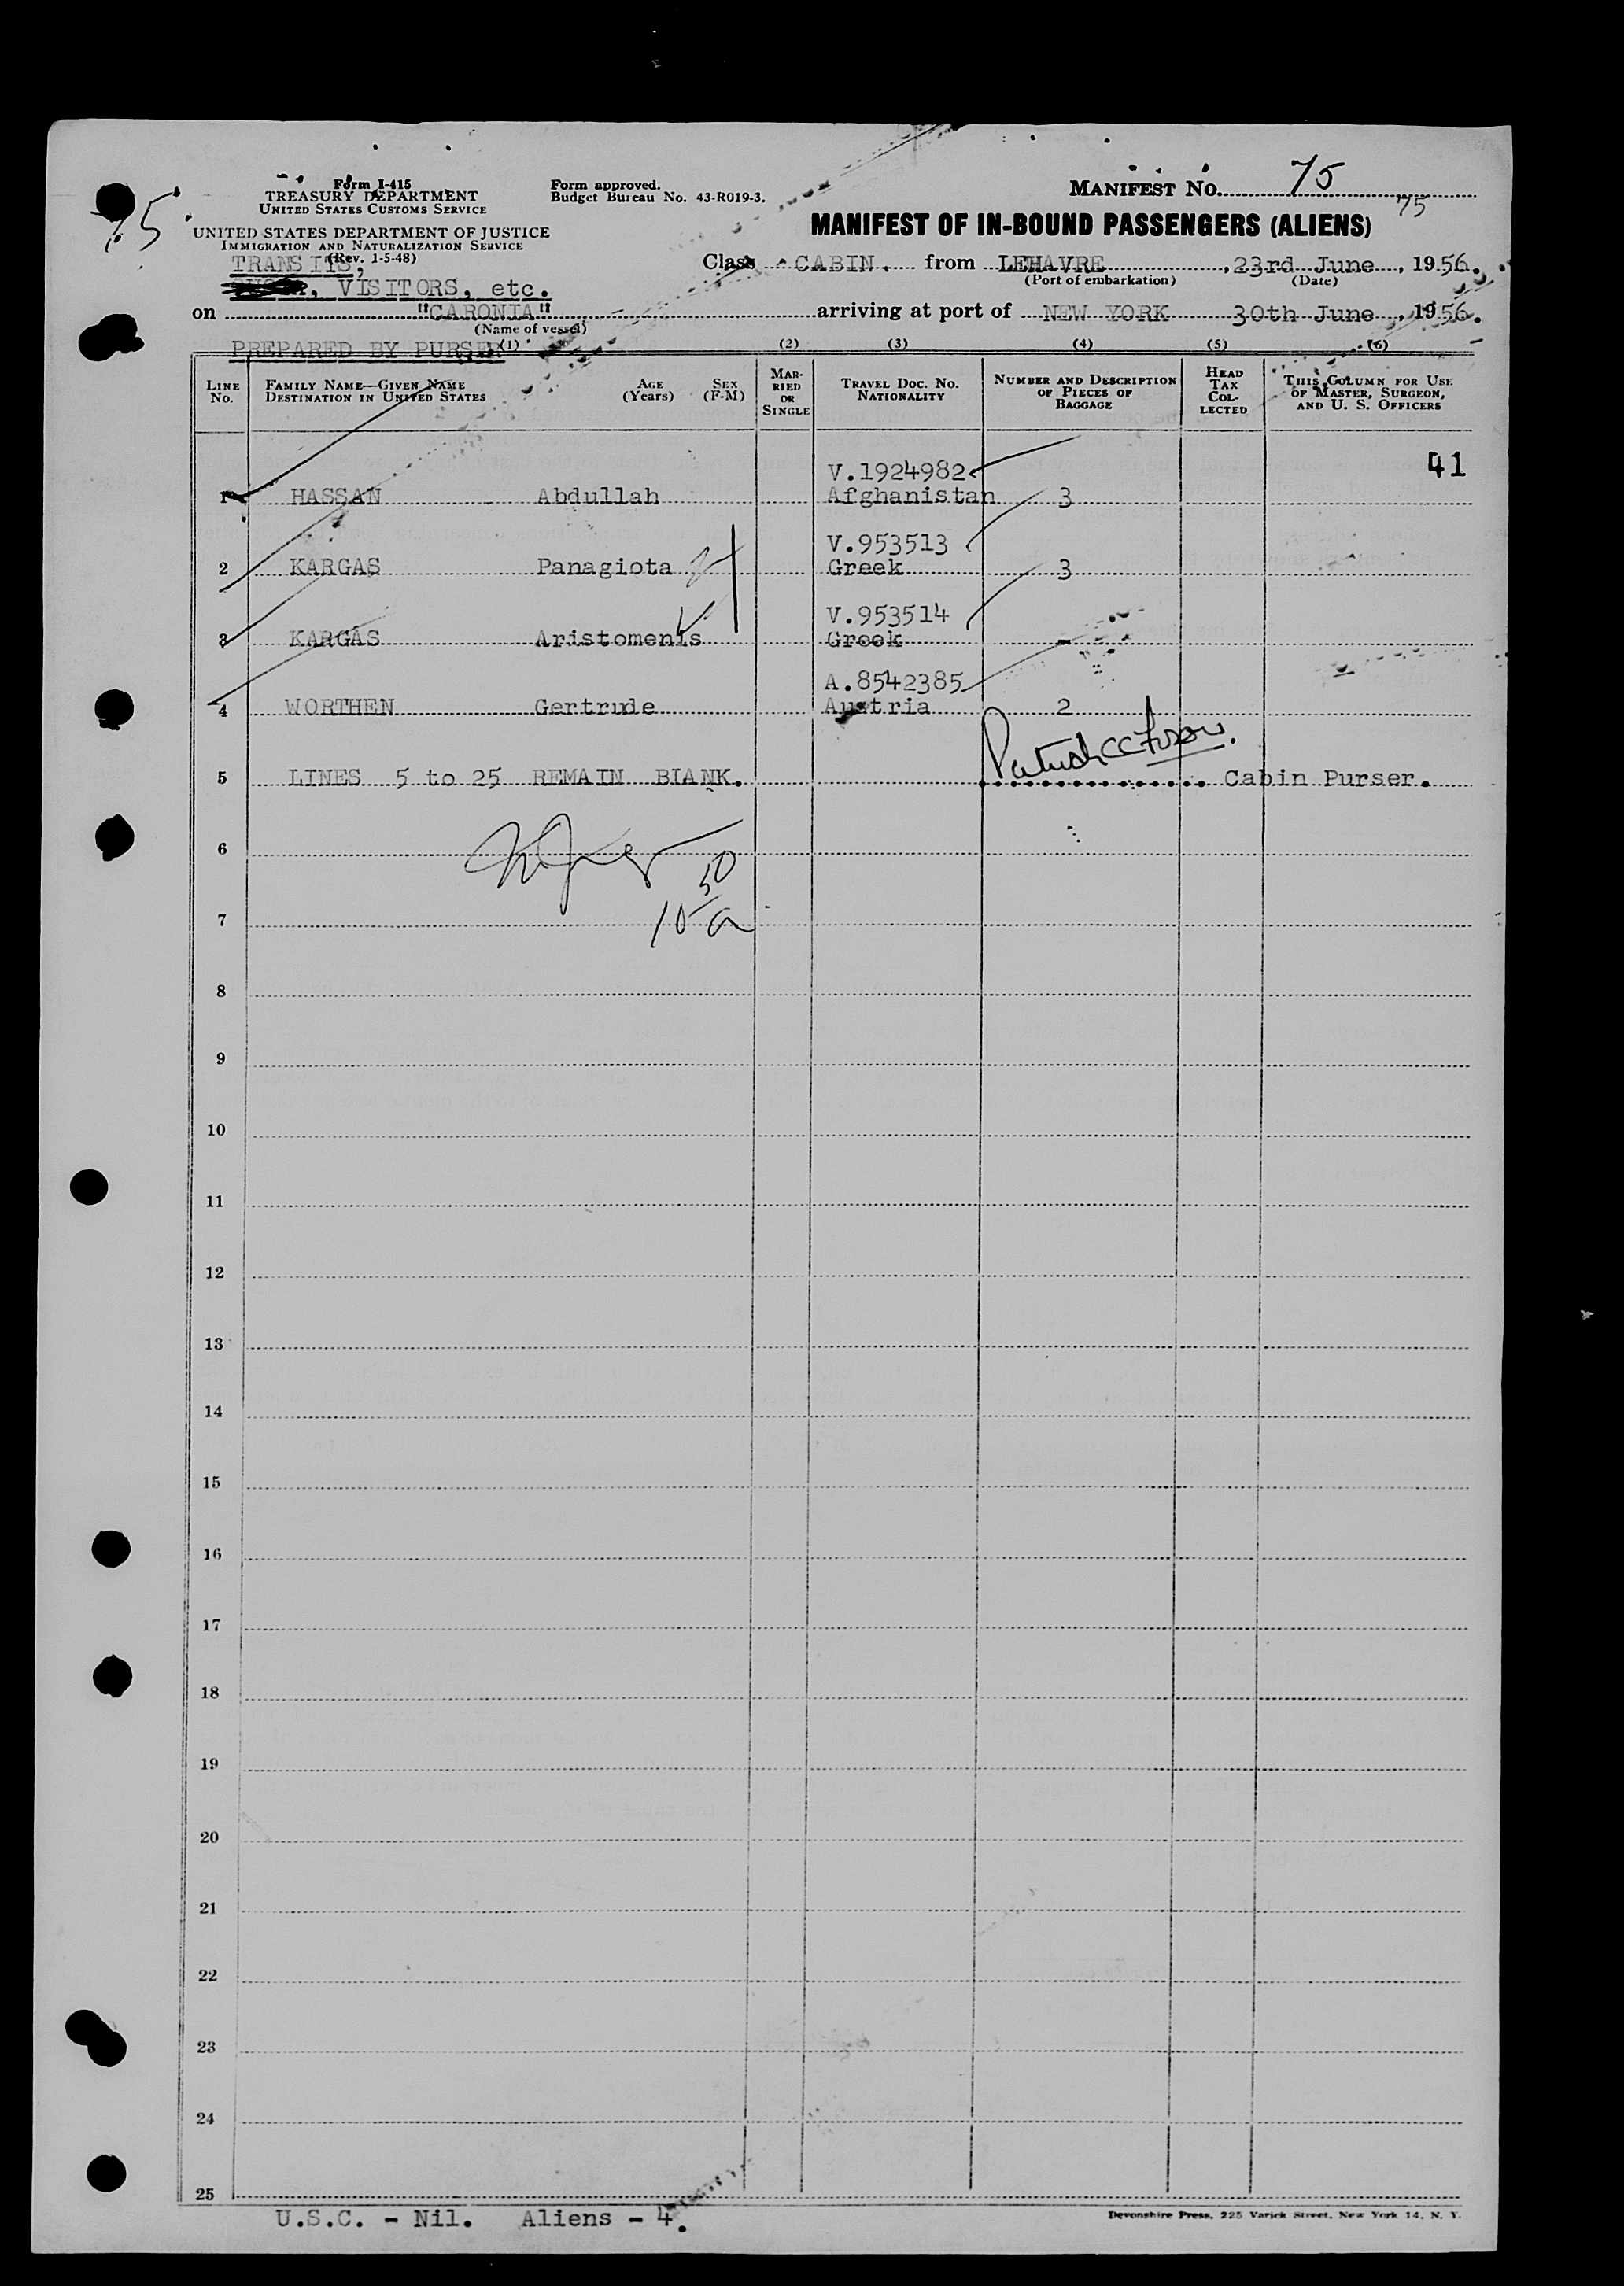 75
Form I-415
TREASURY DEPARTMENT
UNITED STATES CUSTOMS SERVICE
UNITED STATES DEPARTMENT OF JUSTICE
IMMIGRATION AND NATURALIZATION SERVICE
(Rev. 1-5-48)
Form approved.
Budget Bureau No. 43-R019-3.
MANIFEST NO. 75
75
MANIFEST OF IN-BOUND PASSENGERS (ALIENS)
TRANSITS,
, VISITORS, etc.
Class CABIN. from LEHAVRE, 23rd June, 1956.
(Port of embarkation) (Date)
on "CARONIA" arriving at port of NEW YORK 30th June, 1956.
(Name of vessel)
PREPARED BY PURSER
(1) (2) (3) (4) (5) (6)
LINE NO.
FAMILY NAME—GIVEN NAME
DESTINATION IN UNITED STATES
AGE (Years)
SEX (F-M)
MARRIED OR SINGLE
TRAVEL DOC. NO.
NATIONALITY
NUMBER AND DESCRIPTION OF PIECES OF BAGGAGE
HEAD TAX COLLECTED
THIS COLUMN FOR USE OF MASTER, SURGEON, AND U. S. OFFICERS
41
V.1924982
1 HASSAN Abdullah Afghanistan 3
V.953513
2 KARGAS Panagiota Greek 3
V.953514
3 KARGAS Aristomenis Greek -
A.8542385
4 WORTHEN Gertrude Austria 2
5 LINES 5 to 25 REMAIN BLANK. Cabin Purser.
6
10 50 a
7
8
9
10
11
12
13
14
15
16
17
18
19
20
21
22
23
24
25
U.S.C. - Nil. Aliens - 4.
Devonshire Press, 225 Varick Street, New York 14, N. Y.